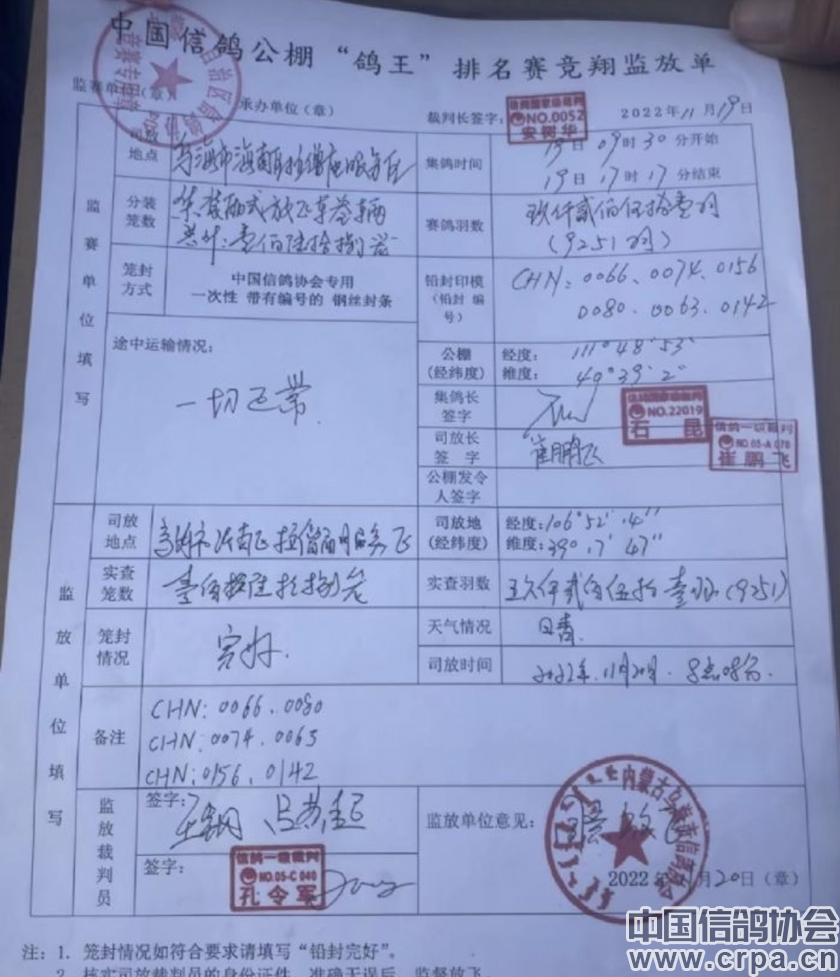 中国信鸽公棚“鸽王”排名赛竞翔监放单
监赛单位(章)
承办单位(章)
裁判长签字:
信鸽国家级裁判
NO.0052
安树华
2022年11月19日
司放地点
集鸽时间
19日09时30分开始
19日17时17分结束
监赛单位填写
分装笼数
赛鸽羽数
玖仟贰佰伍拾壹羽
(9251羽)
笼封方式
中国信鸽协会专用
一次性 带有编号的 钢丝封条
铅封印模
(铅封 编号)
CHN:0066、0074、0156
0080、0063、0142
途中运输情况:
一切正常
公棚
(经纬度)
经度:111°48′53″
维度:40°39′2″
集鸽长签字
NO.22019
石昆
司放长签字
崔鹏飞
信鸽一级裁判
NO.05-A 078
崔鹏飞
公棚发令人签字
监放单位填写
司放地点
司放地
(经纬度)
经度:106°52′4″
维度:39°7′47″
实查笼数
实查羽数
玖仟贰佰伍拾壹羽(9251)
笼封情况
完好.
天气情况
日青
司放时间
2022年.11月20日.8点08分.
备注
CHN:0066.0080
CHN:0074.0063
CHN:0156.0142
监放裁判员
签字:
签字:
信鸽一级裁判
NO.05-C 040
孔令军
监放单位意见:
2022年11月20日(章)
注:1. 笼封情况如符合要求请填写“铅封完好”。
2. 核实司放裁判员的身份证件,准确无误后,监督放飞
中国信鸽协会
www.crpa.cn